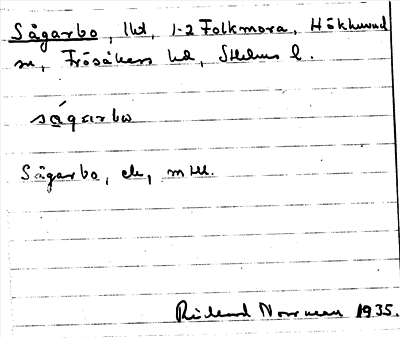 Sågarbo, lht, 1-2 Folkmora, Hökhuvud
sn, Frösåkers hd, Sthlms l.
ságarbω
Sågarbo, ek, mtll.
Rickard Norrman 1935.